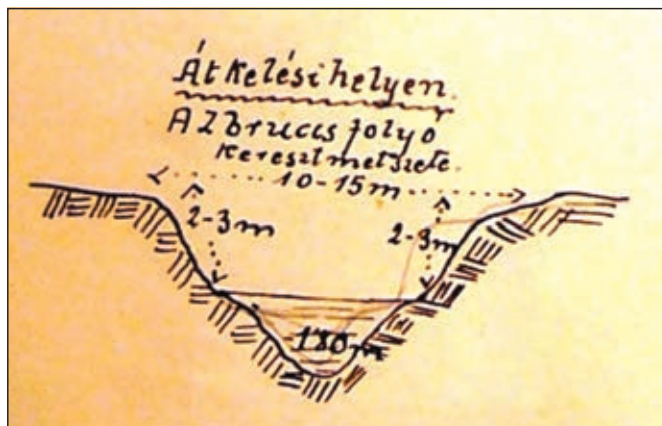 Átkelési helyen.
A Zbrucs folyó
keresztmetszete.
10-15m
2-3m
2-3m
180m